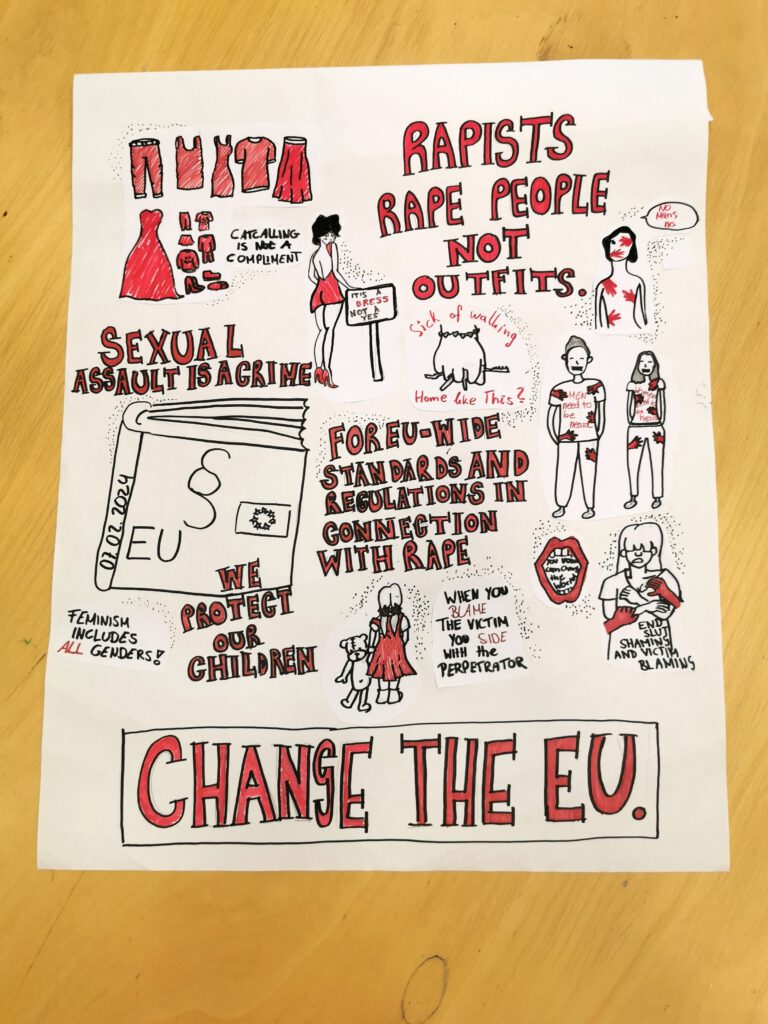 RAPISTS
RAPE PEOPLE
NOT
OUTFITS.
NO
Means
no.
CATCALLING
IS NOT A
COMPLIMENT
IT'S A
DRESS
NOT A
YES
Sick of walking
Home like This?
SEXUAL
ASSAULT IS A CRIME
MEN
need to
be
heard
07.02.2024
§
EU
FOR EU-WIDE
STANDARDS AND
REGULATIONS IN
CONNECTION
WITH RAPE
can Change
the
World
WE
PROTECT
OUR
CHILDREN
FEMINISM
INCLUDES
ALL GENDERS!
WHEN YOU
BLAME
THE VICTIM
YOU SIDE
WITH the
PERPETRATOR
END
SLUT
SHAMING
AND VICTIM
BLAMING
CHANGE THE EU.